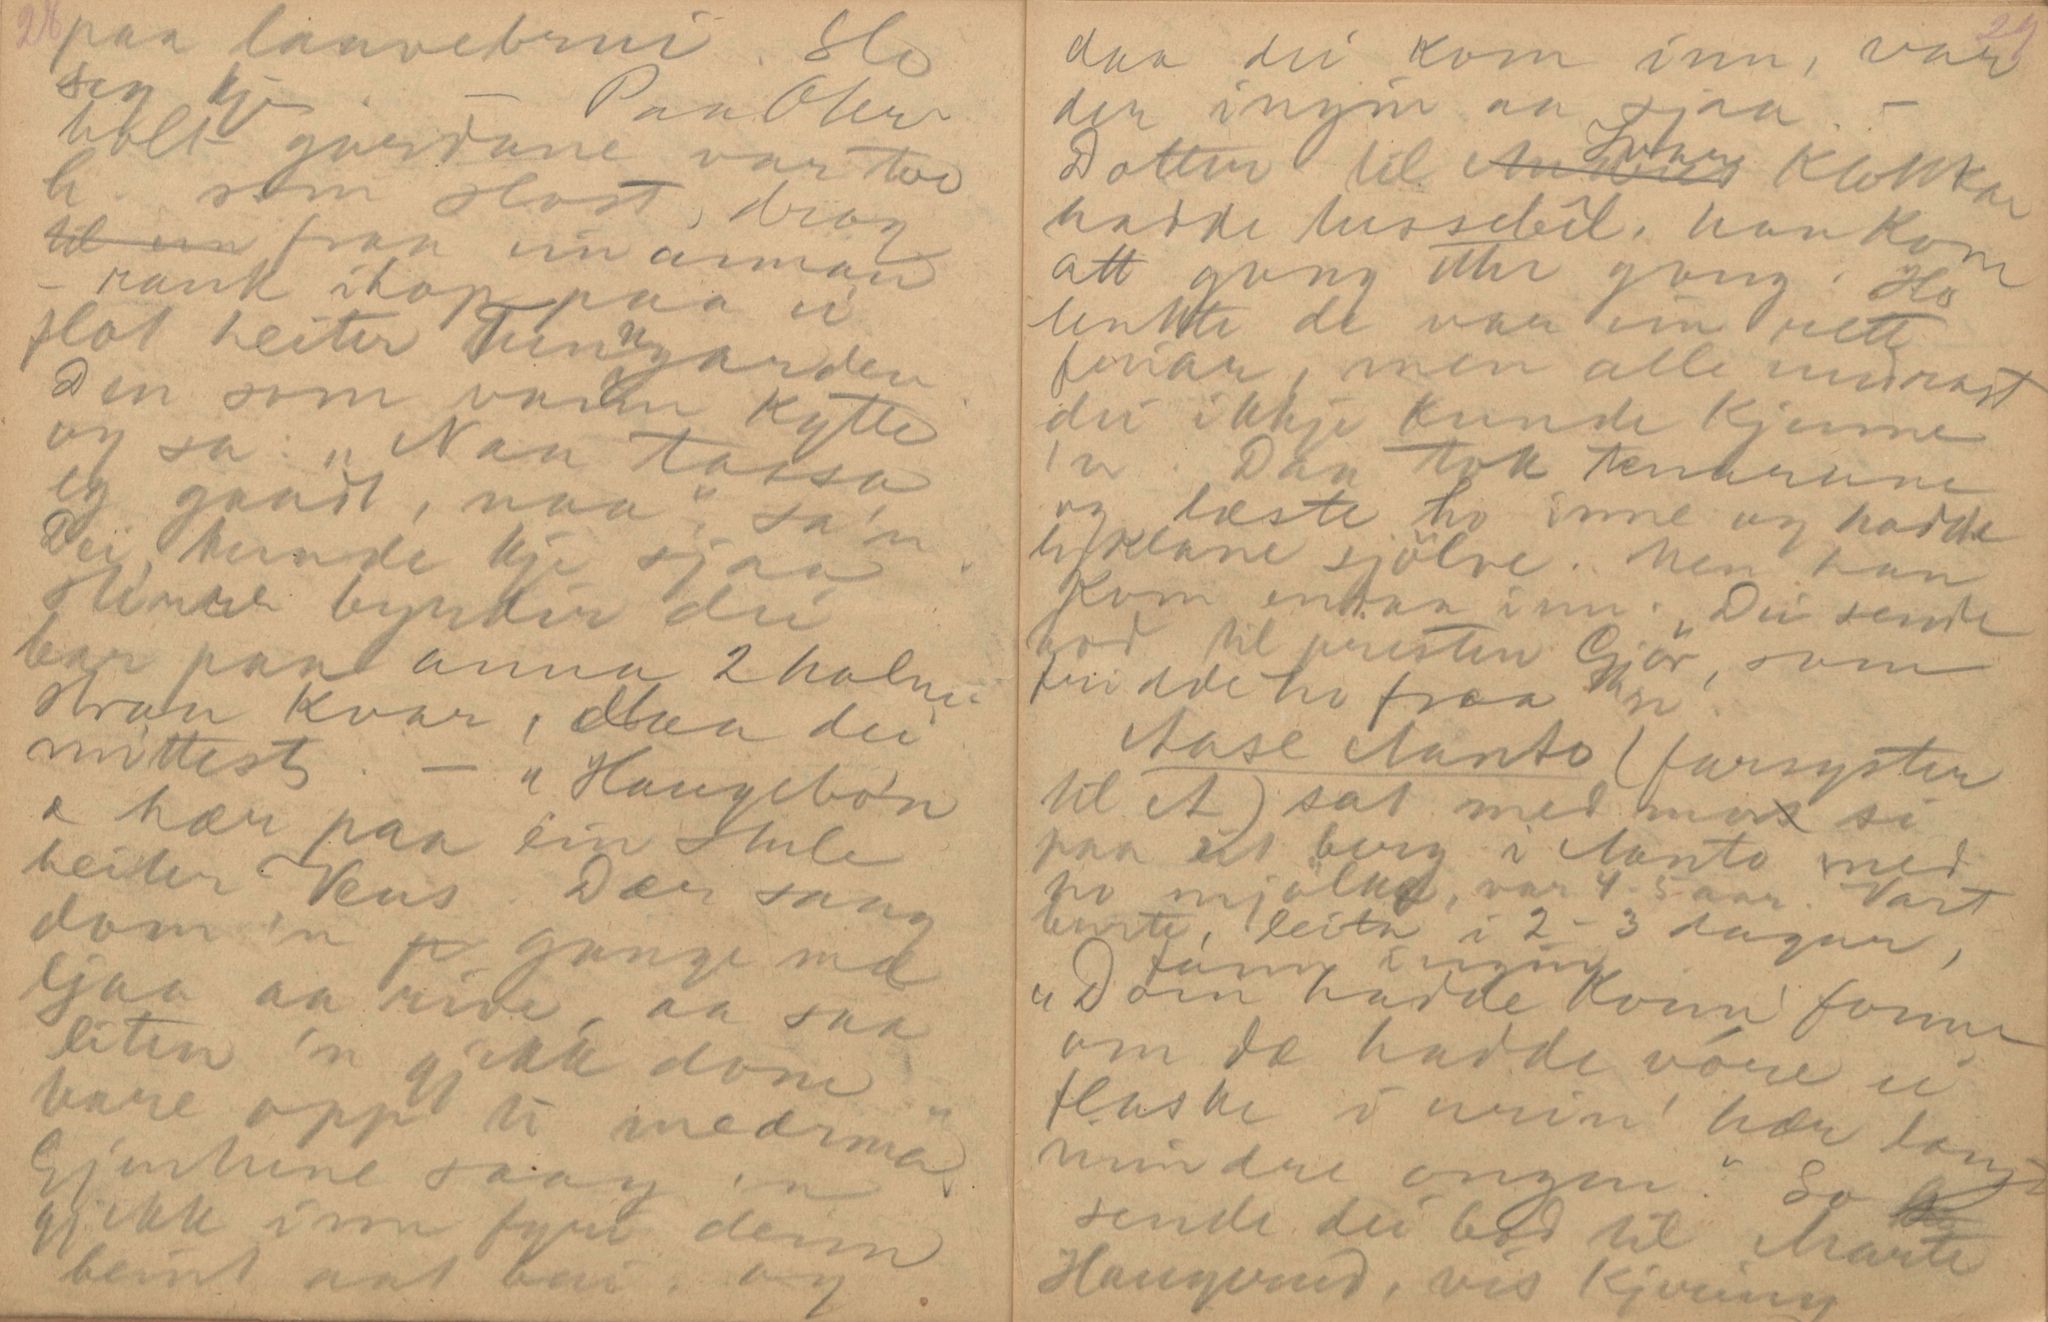 28
paa laavebrui. Slo
seg kje. — Paa Oter
holt gardane var two
h. som slost, drog
til ein fraa ein annan
- rank ihop paa ei
flot heiter Tunngarden
Den som vann kytte
og sa: "Naa tassa
eg gaadt, naa", sa'n.
Dei kunde kje sjaa
større byrdir dei
bar paa anna 2 halm-
straa kvar, dæa dei
mittest. — "Haugebón
æ hær paa ein stule
heiter Veus. Dær saag
dom 'n gange mæ
ljaa aa rive, aa saa
liten 'n gjekk dom
bare opp ti medrmæ"
Gjenhene saag 'n
gjekk inn fyri denn
beint aat bui. og
29
daa dei kom inn, var
der ingin aa sjaa. —
Dotter til Ivar Klokkar
hadde hussebil. han kom
att gong etter gong. Ho
tenkte de var ein rett
friar, men alle undrast
dei ikkje kunde kjenne
'n. Daa tok tenarane
og læste ho inne og hadde
lyklane sjölve. Men han
kom endaa inn. Dei sende
bod til presten Gjör, som
fridde ho fraa 'n.
Aase Aanto (farsyster
til A) sat med mor si
paa eit berg i Aanto med
ho mjölka, var 4-5 aar. Vart
burte, leita i 2-3 dagar,
fann ingin
"Dom hadde konn' fonne
om dæ hadde vóre ei
flaske i urin' hær langt
mindre ongen." So
sende dei bod til Marte
Haugerud, vis kjering